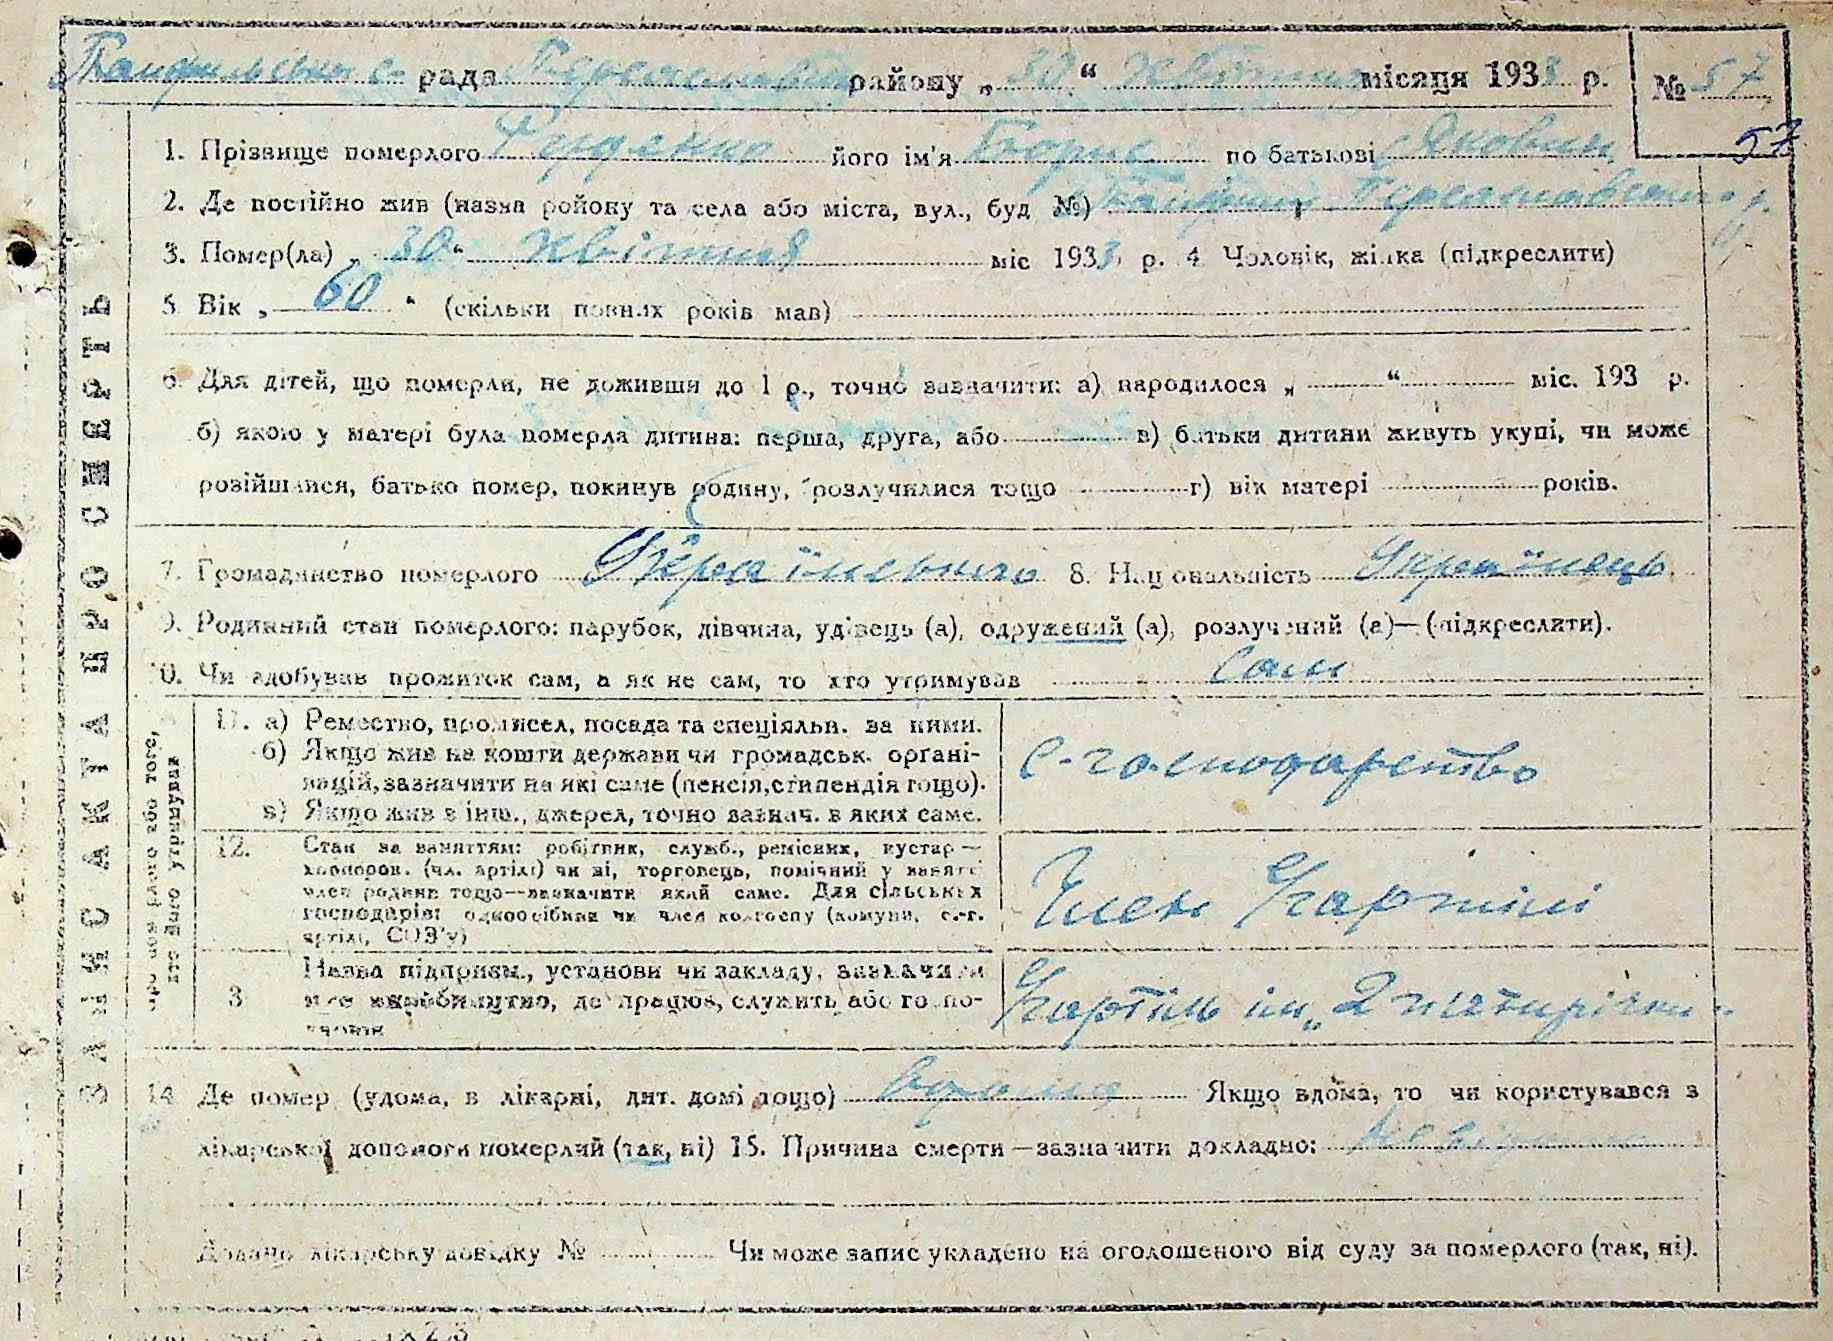 рада Переяславськ району „30“ Квітня місяця 1933 р. № 57
57
1. Прізвище померлого його ім'я Борис по батькові Якович
2. Де постійно жив (назва ройону та села або міста, вул., буд №) Переяславського р.
3. Помер(ла) „30“ Квітня міс 1933 р. 4 Чоловік, жінка (підкреслити)
5 Вік „60“ (скільки повних років мав)
6. Для дітей, що померли, не доживши до 1 р., точно зазначити: а) народилося „ “ міс. 193 р.
б) якою у матері була померла дитина: перша, друга, або в) батьки дитини живуть укупі, чи може
розійшлися, батько помер, покинув родину, розлучилися тощо г) вік матері років.
7. Громадянство померлого Українського 8. Національність Українець
9. Родинний стан померлого: парубок, дівчина, удівець (а), одружений (а), розлучений (а)—(підкреслити).
10. Чи здобував прожиток сам, а як не сам, то хто утримував Сам
ЗАПИС АКТА ПРО СМЕРТЬ
11. а) Ремество, промисел, посада та спеціяльн. за ними.
б) Якщо жив на кошти держави чи громадськ. органі-
зацій, зазначити на які саме (пенсія, стипендія тощо).
в) Якщо жив з інш., джерел, точно зазнач. з яких саме.
С-господарство
12. Стан за заняттям: робітник, служб., ремісник, кустар—
кооперов. (чл. артілі) чи ні, торговець, помічний у занятті
член родини тощо—зазначити який саме. Для сільських
господарів: одноосібник чи член колгоспу (комуни, с.-г.
артілі, СОЗ'у)
Член С/гартілі
3 Назва підприєм., установи чи закладу, зазначити
виробництво, де працює, служить або госпо-
С/гартіль ім „2 п'ятирічки“
14 Де помер (удома, в лікарні, дит. домі тощо) вдома Якщо вдома, то чи користувався з
лікарської допомоги померлий (так, ні) 15. Причина смерти—зазначити докладно:
Додано лікарську довідку № Чи може запис укладено на оголошеного від суду за померлого (так, ні).